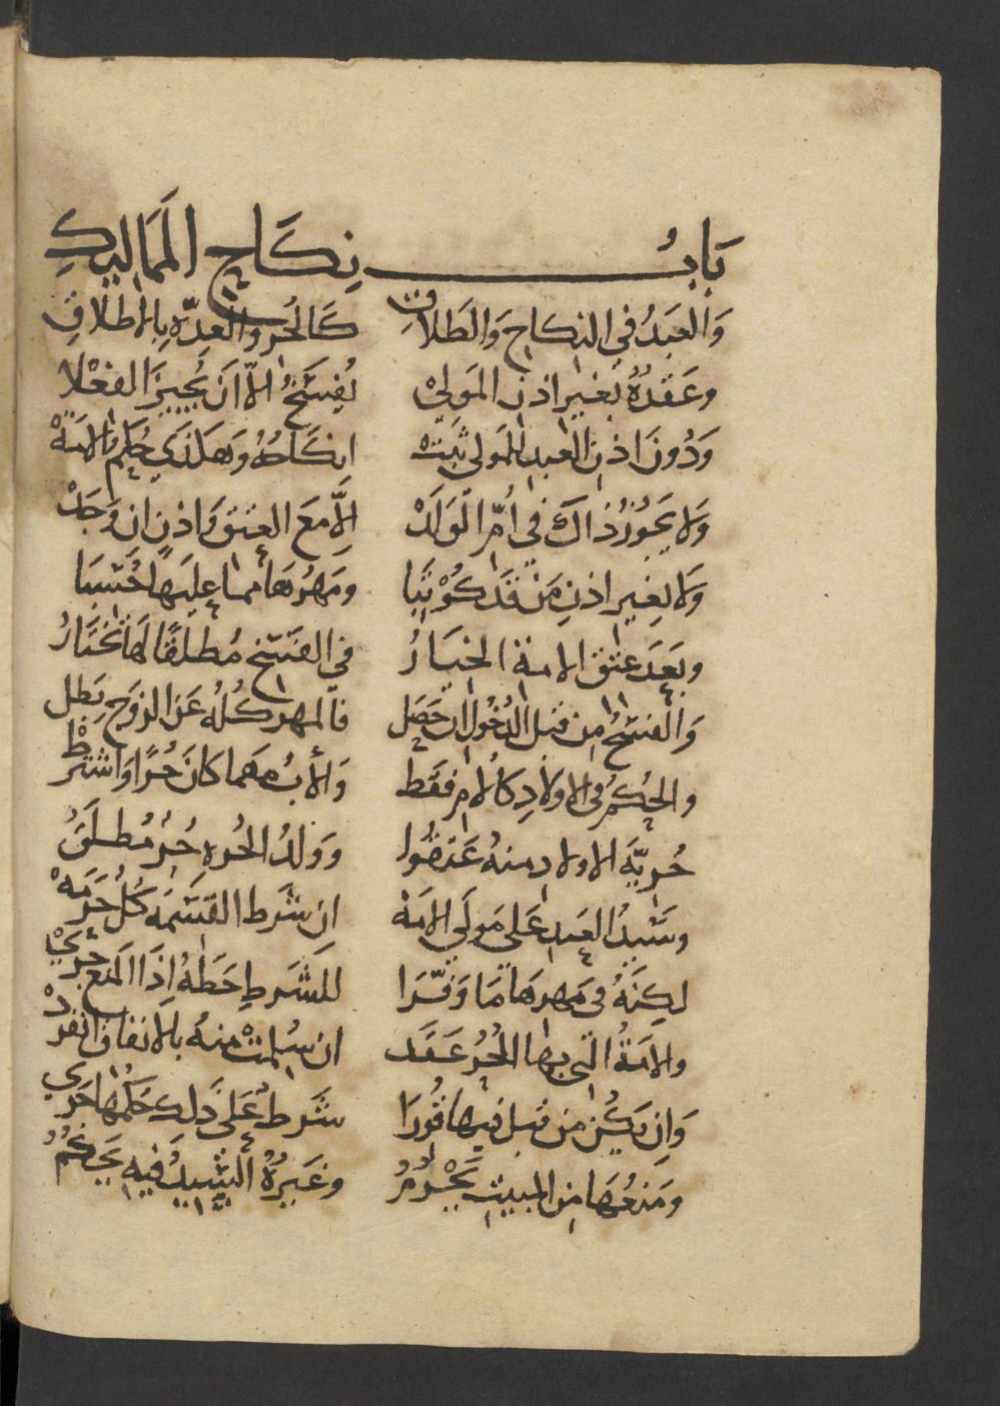 بَابُ نِكَاحِ المَمَاليكِ
وَالعَبدُ في النكاحِ وَالطَلاقِ كَالحُرِّ والعِدّهِ بِالاطلاقِ
وعَقدُهُ بغيرِ اذنِ المَوليْ يُفسَخُ الاّ ان يُجيزَ الفعْلا
وَدُونَ اذنِ العبدِ للمَولى ثبَتْ انكَاحُهُ وَهكذَي حُكمُ الامَةْ
وَلا يجوزُ ذاكَ في أمِّ الوَلَدْ الاَّ مَعَ العتقِ وَاذنٍ ان وَجَدْ
وَلا بغيرِ اذنِ مَنْ قَد كُوْتِبَا ومَهرُهَا مما عليهَا حُسِبَا
وبَعدَ عتقِ الامةِ الخيَارُ في الفسخِ مُطلقًا لهَا تختَارُ
وَالفسخُ من قبلِ الدُخُولِ ان حَصَل فالمهرُ كُلُهُ عَنِ الزوجِ بَطل
والحُكمُ في الاولادِ كالامِ فقَط وَالأبُ مهما كانَ حُرًا وَاشترطْ
حُريّةَ الاولادِ منهُ عَتقُوا ووَلدُ الحُرهِ حُرٌ مُطلَقُ
وسَيّدُ العَبدِ عَلى مَولَى الامَهْ ان شَرط القسمَه كُلٌ حَرَمَهْ
لكِنَهُ في مَهرهَا مَا وَفّرَا للشَرطِ حَطهُ إذَا المنع جَرَيْ
والامَةُ التي بها الحُرُ عَقَد ان سُلمتْ منهُ بالانفاقِ انفردْ
وَانِ يَكُن من قبل فيها قُورَا شَرط عَلَى ذلكَ حكمُها جَرَي
ومَنعُهَا من المبيتِ يَحْرُمُ وغَيرُهُ السّيدُ فيهِ يَحكُمُ